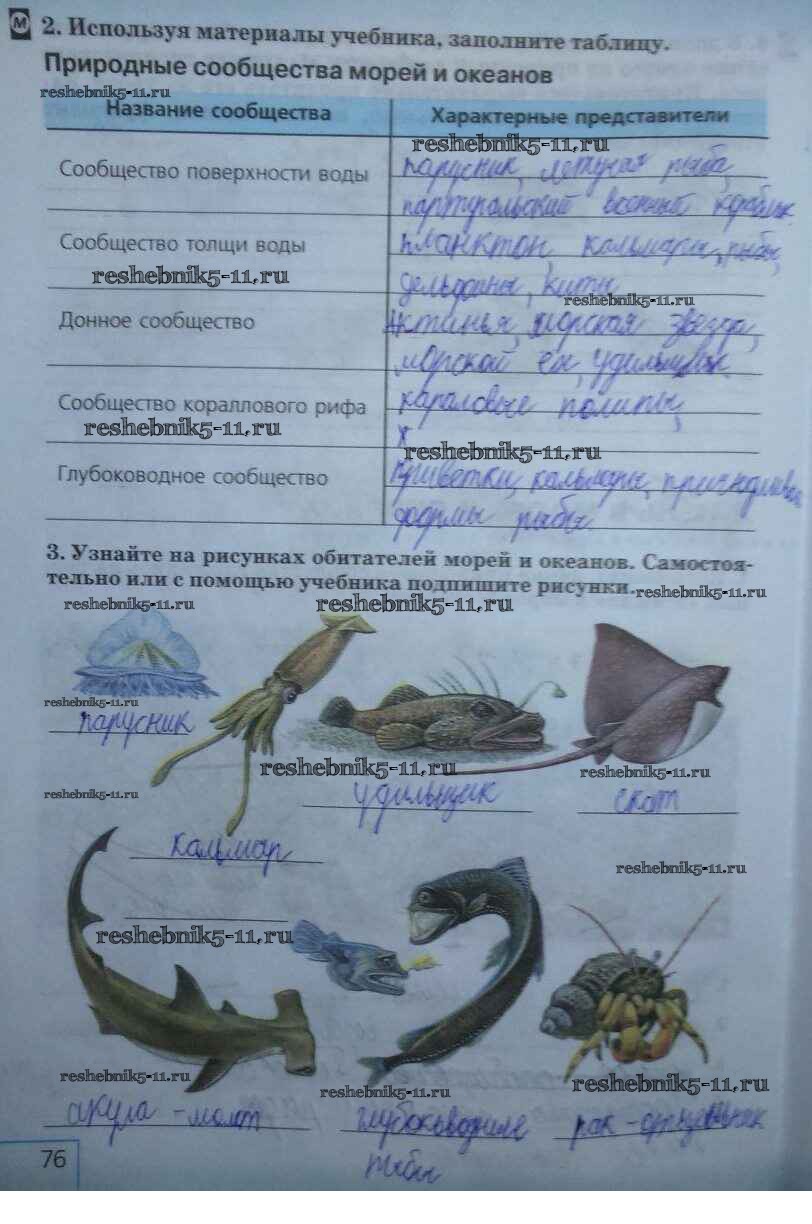 М 2. Используя материалы учебника, заполните таблицу.
Природные сообщества морей и океанов
reshebnik5-11.ru
Название сообщества Характерные представители
reshebnik5-11.ru
Сообщество поверхности воды парусник, летучая рыба,
португальский военный кораблик
Сообщество толщи воды планктон, кальмары, рыбы,
reshebnik5-11.ru
дельфины, киты
reshebnik5-11.ru
Донное сообщество Актинья, морская звезда,
морской ёж, удильщик
Сообщество кораллового рифа караловые полипы,
reshebnik5-11.ru
х
reshebnik5-11.ru
Глубоководное сообщество Криветки, кальмары,
формы рыбы
3. Узнайте на рисунках обитателей морей и океанов. Самостоя-
тельно или с помощью учебника подпишите рисунки.
reshebnik5-11.ru
reshebnik5-11.ru
reshebnik5-11.ru
reshebnik5-11.ru
парусник
reshebnik5-11.ru
reshebnik5-11.ru
reshebnik5-11.ru
удильщик
скат
кальмар
reshebnik5-11.ru
reshebnik5-11.ru
reshebnik5-11.ru
reshebnik5-11.ru
reshebnik5-11.ru
акула-молот
глубоководные
рак-отшельник
рыбы
76